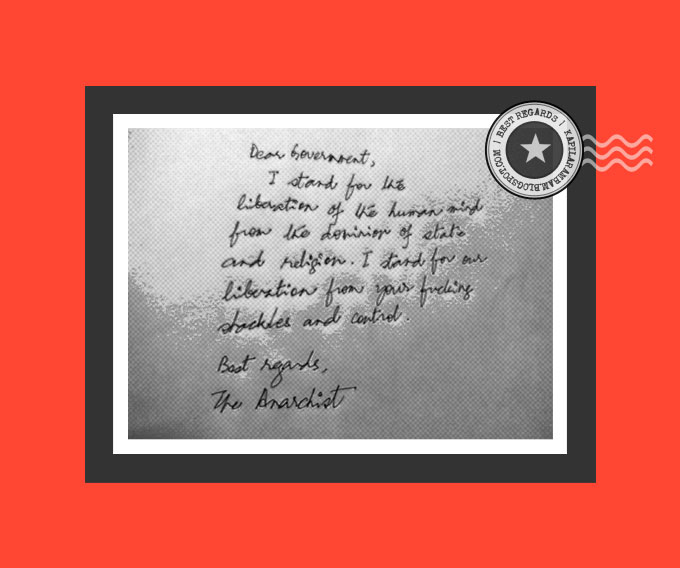 Dear Government,
I stand for the
liberation of the human mind
from the dominion of state
and religion. I stand for our
liberation from your fucking
shackles and control.
Best regards,
The Anarchist
| BEST REGARDS | KAPILARAMBAM.BLOGSPOT.COM